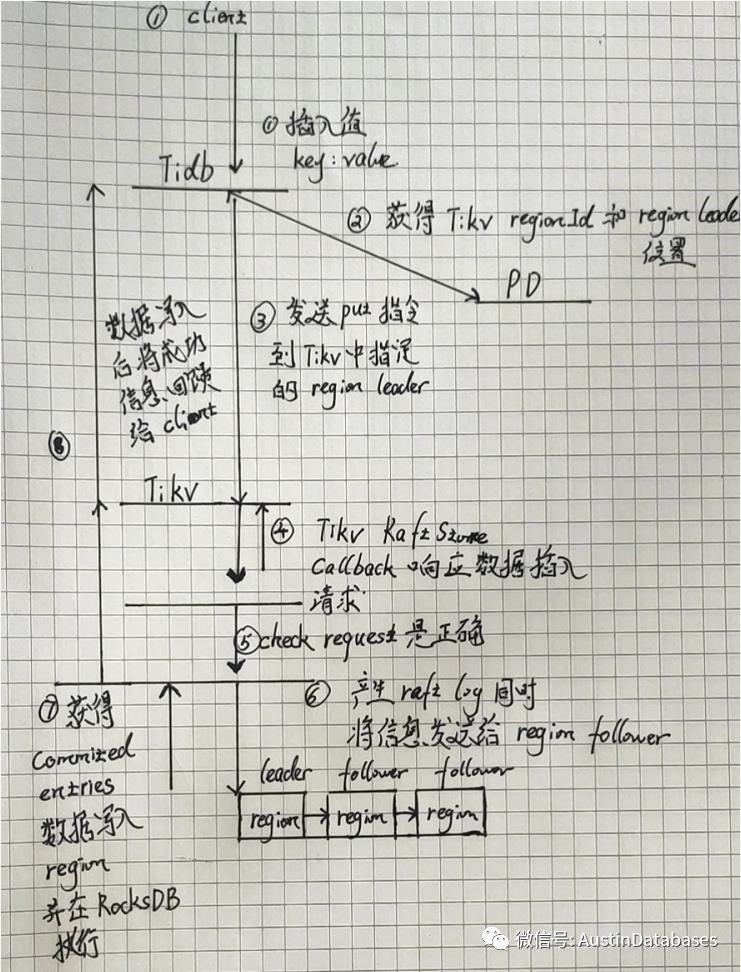 ① client
① 插入值
key:value
Tidb
② 获得 Tikv regionId 和 region leader
位置
PD
③ 发送put指令
到Tikv中指定
的 region leader
数据写入
后将成功
信息回馈
给 client
⑧
Tikv
④ Tikv RaftStore
Callback 响应数据插入
请求
⑤check request 是正确
⑥ 产生 raft log 同时
将信息发送给 region follower
leader follower follower
region region region
⑦ 获得
Commized
entries
数据写入
region
并在RocksDB
执行
微信号: AustinDatabases